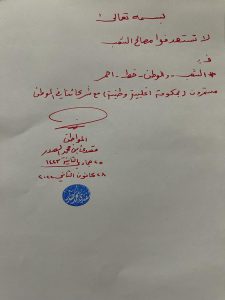 بسمه تعالى
لا تستهدفوا مصالح الشعب
فـ :
#الشعب - والوطن - خط - احمر
مستمرون (بحكومة اغلبية وطنية) مع شركائنا في الوطن
المواطن
مقتدى بن محمد الصدر
٢٥ جمادي الثانية ١٤٤٣
٢٨ كانون الثاني ٢٠٢٢